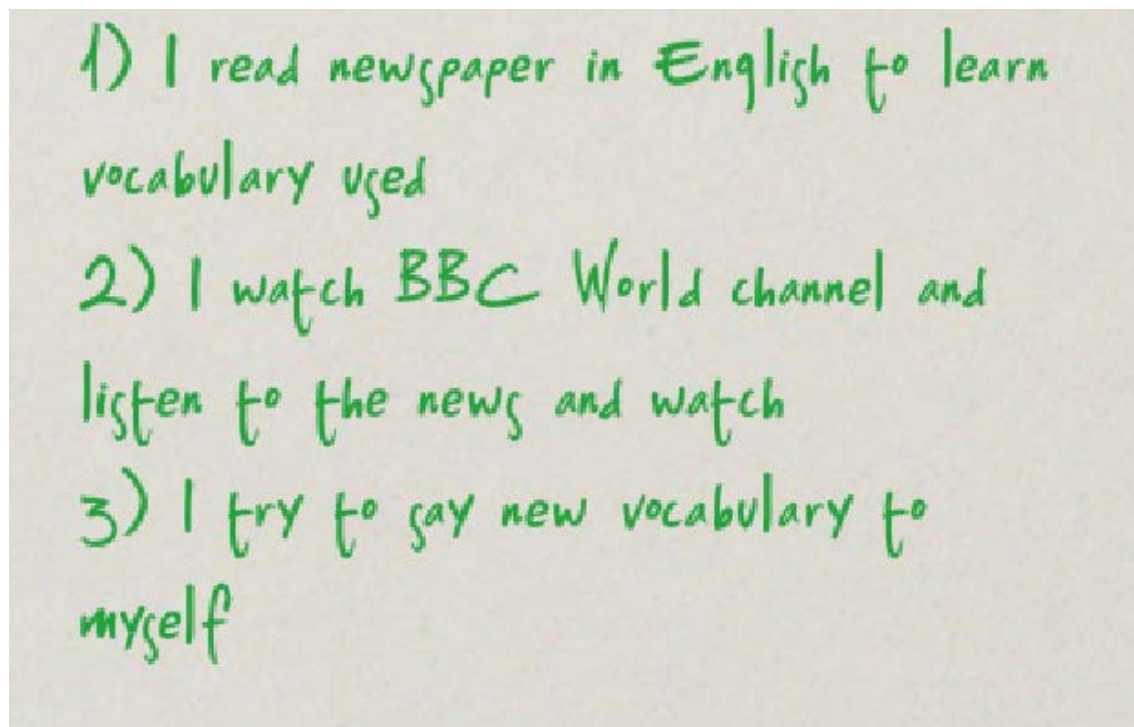 1) I read newspaper in English to learn
vocabulary used
2) I watch BBC World channel and
listen to the news and watch
3) I try to say new vocabulary to
myself